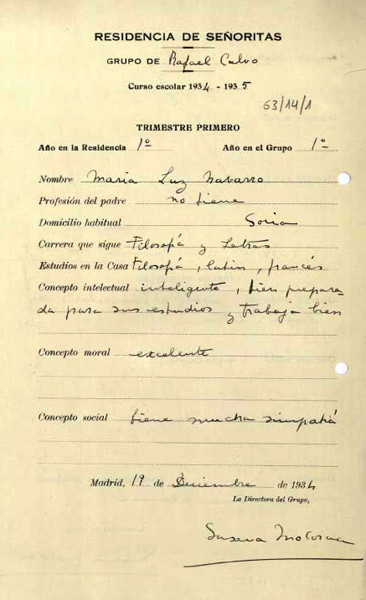 RESIDENCIA DE SEÑORITAS
GRUPO DE Rafael Calvo
Curso escolar 1934 - 1935
63/14/1
TRIMESTRE PRIMERO
Año en la Residencia 1º Año en el Grupo 1º
Nombre Maria Luz Navarro
Profesión del padre no tiene
Domicilio habitual Soria
Carrera que sigue Filosofía y Letras
Estudios en la Casa Filosofía, latin, francés
Concepto intelectual inteligente, bien prepara-
da para sus estudios y trabaja bien
Concepto moral excelente
Concepto social tiene mucha simpatía
Madrid, 19 de Diciembre de 1934
La Directora del Grupo,
Susana